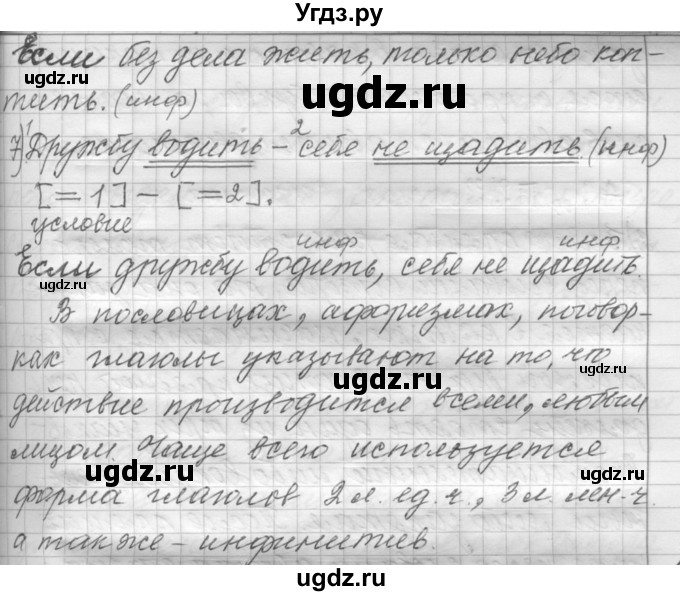 Угдз.ру
Если без дела жить, только небо коп-
ugdz.ru
ugdz.ru
ugdz.ru
тить. (инф)
7) 1 Дружбу водить – 2 себя не щадить. (инф)
[= 1] – [= 2].
ugdz.ru
ugdz.ru
условие
инф инф
Если дружбу водить, себя не щадить.
ugdz.ru
ugdz.ru
В пословицах, афоризмах, поговор-
ках глаголы указывают на то, что
ugdz.ru
действие производится всеми, любым
лицом. Чаще всего используется
ugdz.ru
ugdz.ru
форма глаголов 2 л. ед. ч., 3 л. мн. ч.
а также – инфинитив.
ugdz.ru